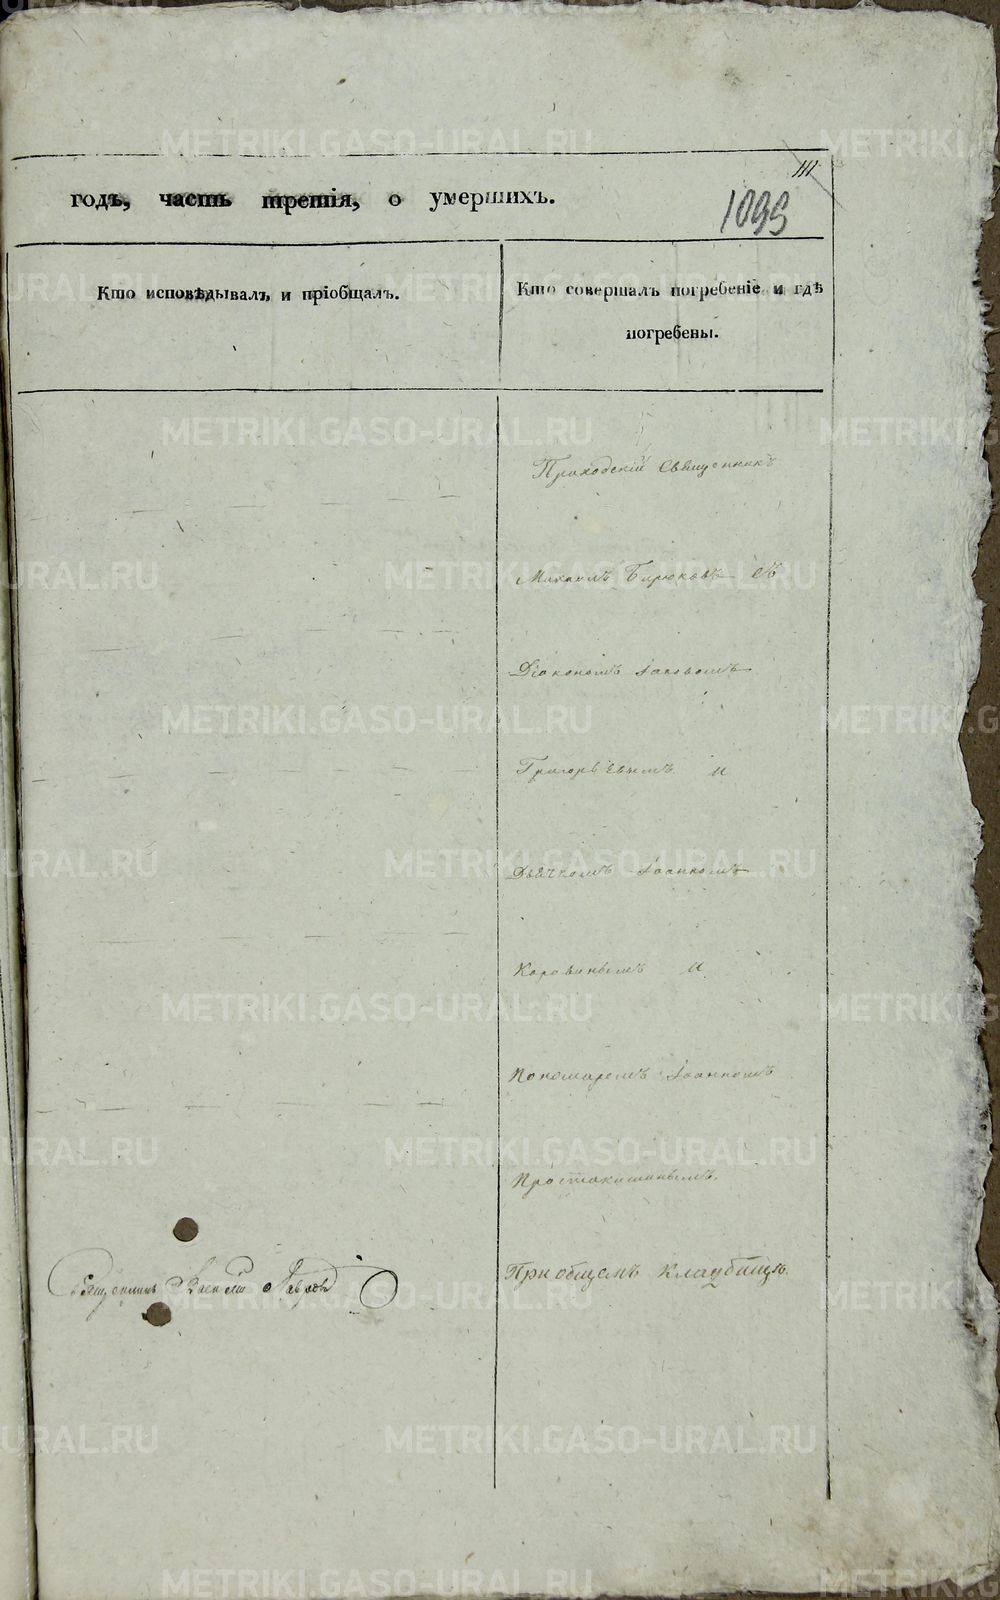 111
годъ, часть третія, о умершихъ.
1099
Кто исповѣдывалъ и пріобщалъ.
Кто совершалъ погребеніе и гдѣ
погребены.
Приходскій Священникъ
Михаилъ Бирюковъ съ
Діакономъ Іаковомъ
Григорьевымъ и
Дьячкомъ Іоанномъ
Коровинымъ и
Пономаремъ Іоанномъ
Простакишинымъ.
При общемъ кладбищѣ.
Священникъ
METRIKI.GASO-URAL.RU